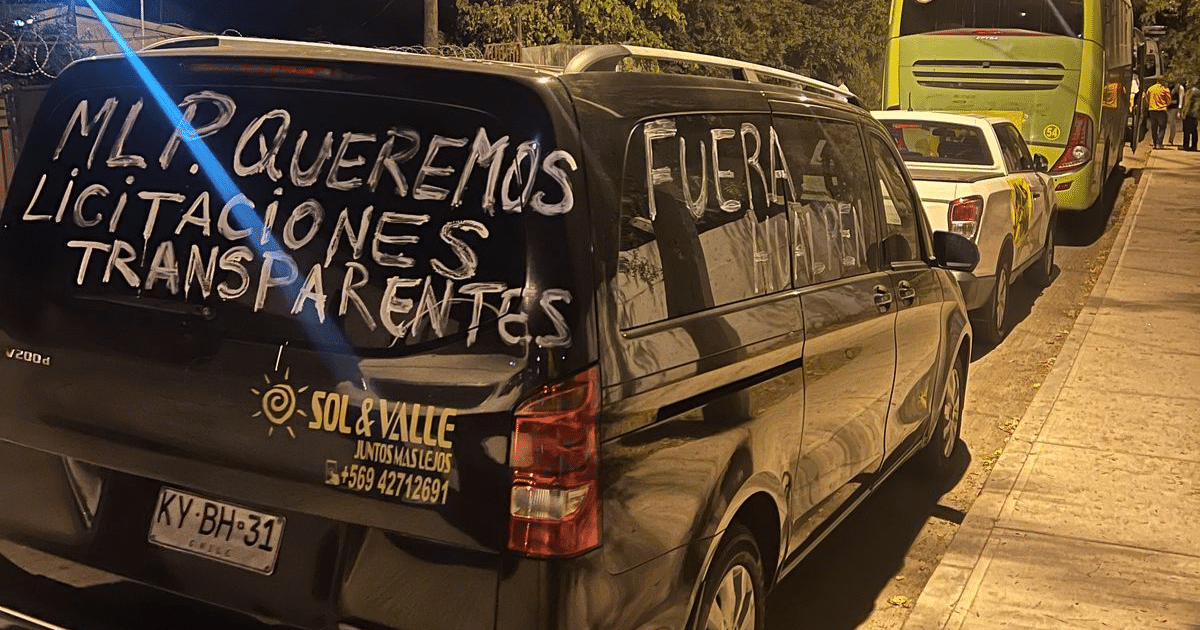 M.L.P. QUEREMOS
LICITACIONES
TRANSPARENTES
FUERA
V200d
SOL & VALLE
JUNTOS MAS LEJOS
+569 42712691
KY·BH·31
CHILE
54